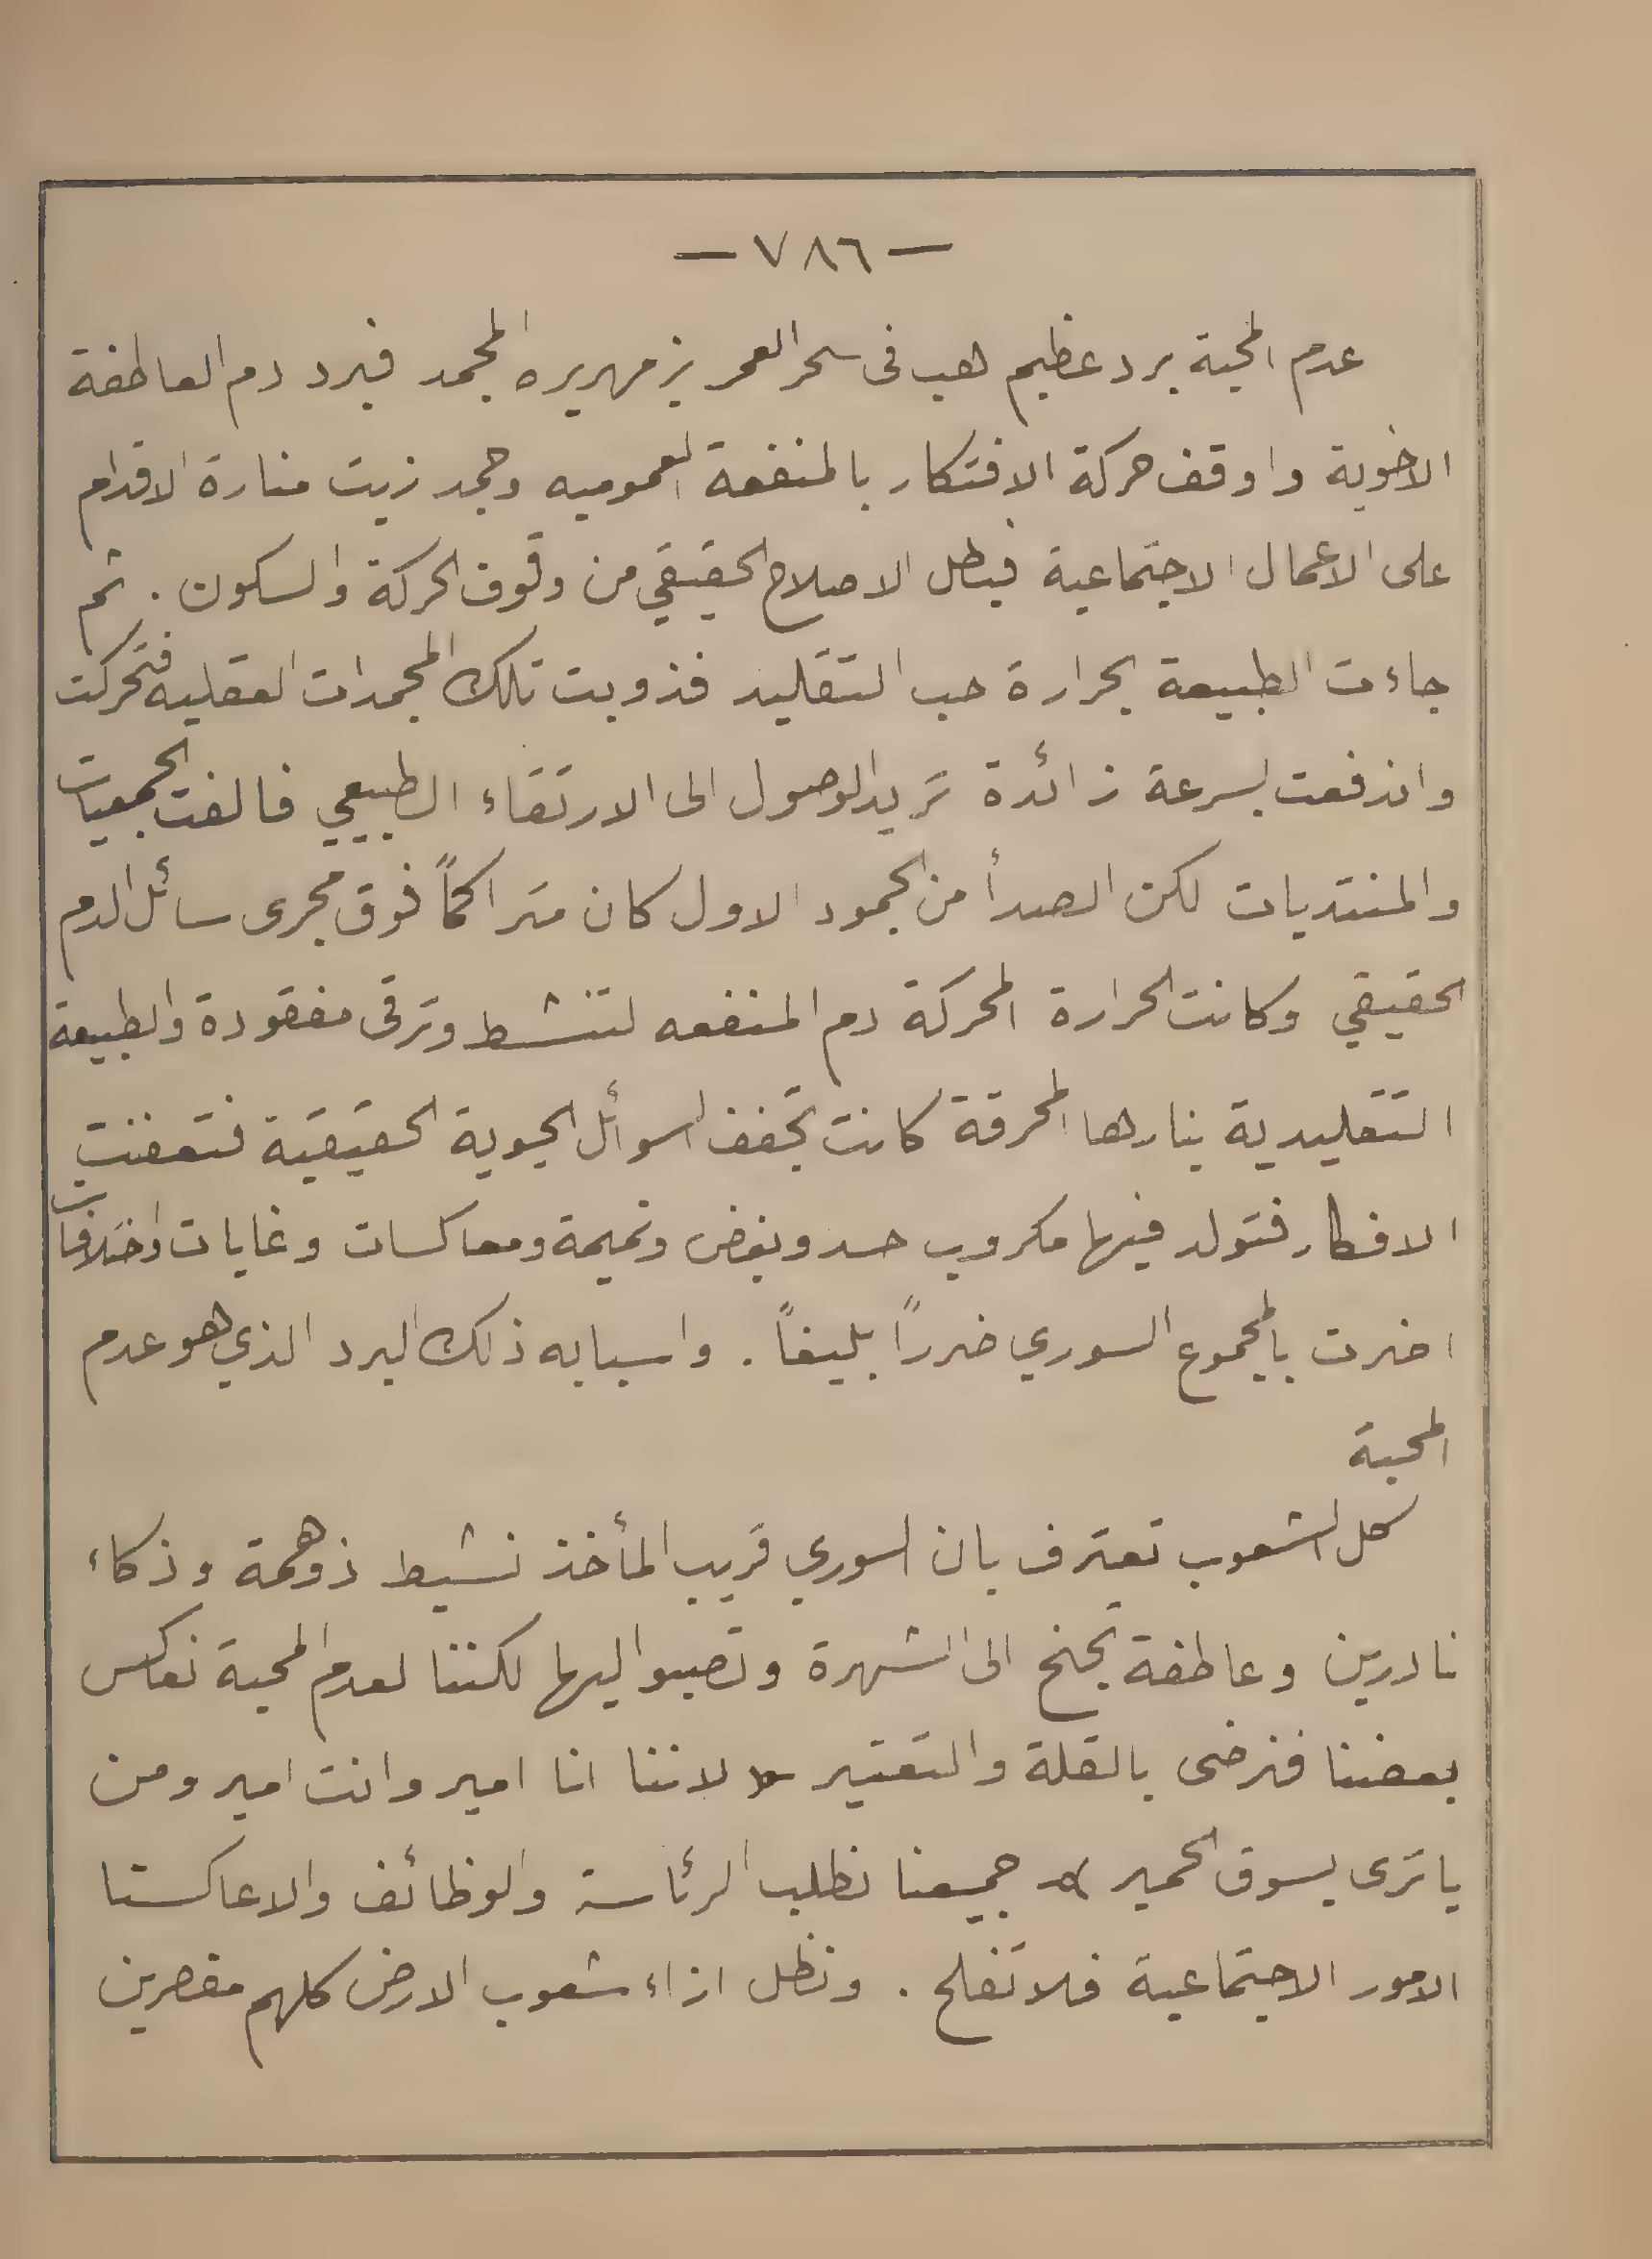 — ٧٨٦ —
عدم المحبة برد عظيم هب فى سحر العمر بزمهريره المجمد فبرد دم العاطفة
الاخوية واوقف حركة الافتكار بالمنفعة العموميه وجمد زيت منارة الاقدام
على الاعمال الاجتماعية فبطل الاصلاح الحقيقي من وقوف الحركة والسكون . ثم
جاءت الطبيعة بحرارة حب التقليد فذوبت تلك المجمدات العقليه فتحركت
واندفعت بسرعة زائدة تريد الوصول الى الارتقاء الطبيعي فالفت الجمعيات
والمنتديات لكن الصدأ من الجمود الاول كان متراكماً فوق مجرى سائل الدم
الحقيقي وكانت الحرارة المحركة دم المنفعه لتنشط وترقى مفقودة والطبيعة
التقليدية بنارها المحرقة كانت تجفف السوائل الحيوية الحقيقية فتعفنت
الافكار فتولد فيها مكروب حسد وبغض ونميمة ومعاكسات وغايات واختلافات
اضرت بالمجموع السوري ضرراً بليغاً . واسبابه ذلك البرد الذي هو عدم
المحبة
كل الشعوب تعترف بان السوري قريب المأخذ نشيط ذو همة وذكاء
نادرين وعاطفة تجنح الى الشهرة وتصبوا اليها لكننا لعدم المحبة نعاكس
بعضنا فنرضى بالقلة والتعتير لاننا انا امير وانت امير ومن
يا ترى يسوق الحمير جميعنا نطلب الرئاسة والوظائف والا عاكسنا
الامور الاجتماعية فلا تفلح . ونظل ازاء شعوب الارض كلهم مقصرين